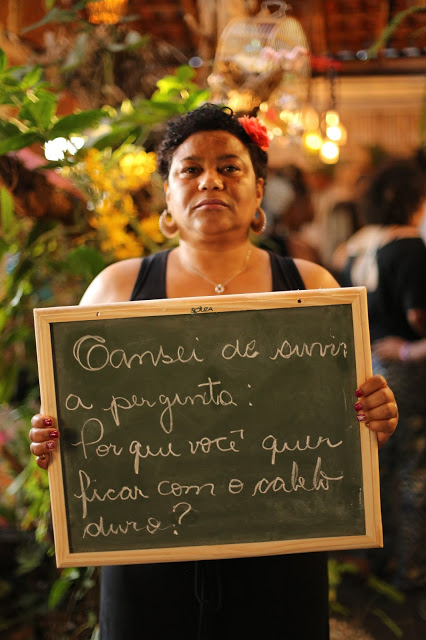 Cansei de ouvir
a pergunta:
Por que você quer
ficar com o cabelo
duro?